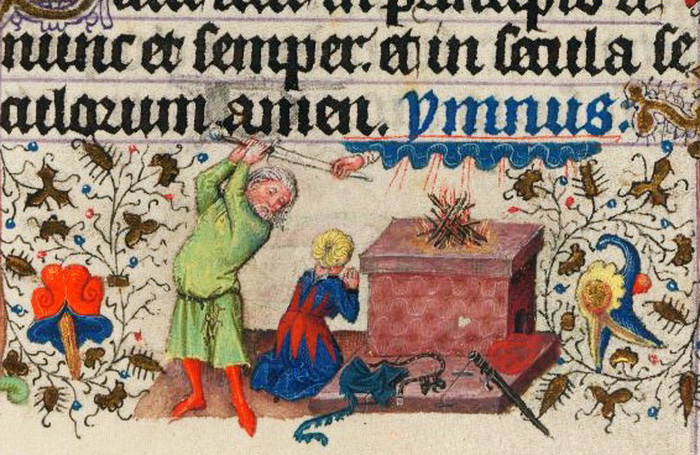 in principio et
nunc et semper. et in secula se
culorum amen. Ymnus.